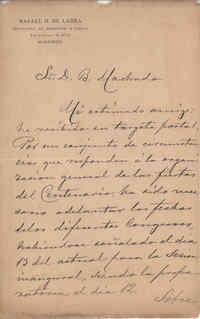 RAFAEL M. DE LABRA
MADRID
Sr. D. B. Machado
Mi estimado amigo:
he recibido su targeta postal.
Por un conjunto de circunstan
cias que responden á la organi
zacion general de las fiestas
del Centenario, ha sido nece
sario adelantar las fechas
de los diferentes Congresos,
habiendose señalado el dia
13 del actual para la sesion
inaugural, siendo la prepa
ratoria el dia 12.
Sobre